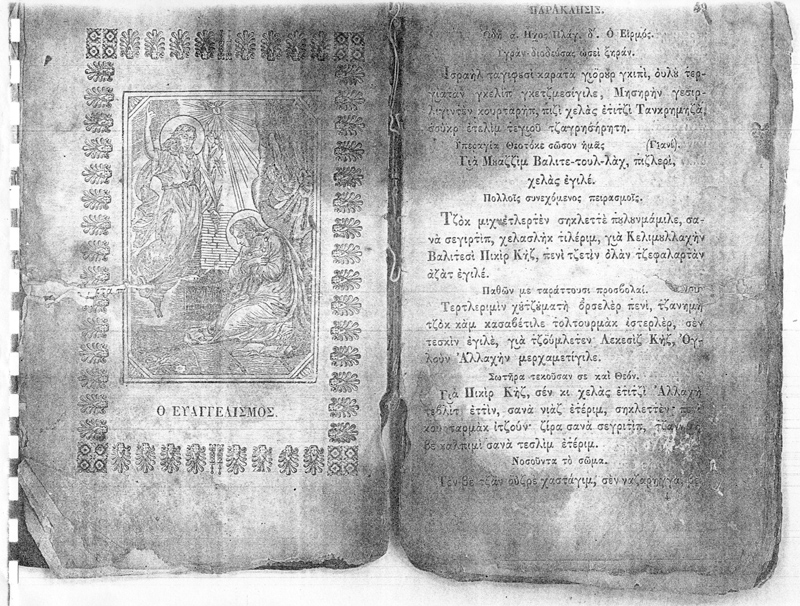 Ο ΕΥΑΓΓΕΛΙΣΜΟΣ.
ΠΑΡΑΚΛΗΣΙΣ. 49
ᾨδὴ α. Ηχος Πλάγ. δ'. Ὁ Εἱρμός.
Ὑγρὰν διοδεύσας ὡσεὶ ξηράν.
Ἰσραὴλ ταγιφεσὶ καρατὰ γιορὺρ γκιπὶ, ὀυλου τερ-
γιατὰν γκελὶπ γκετζμεσίγιλε, Μησηρὴν γεσιρ-
λιγιντὲν κουρταρὴπ, πιζὶ χελὰς ἐτιτζὶ Τανκρημηζὰ,
σούκρ ἐτελὶμ τεγιοῦ τζαγρησήρητη.
Ὑπεραγία Θεοτόκε σῶσον ἡμᾶς (Γιανέ).
Γιὰ Μυαζζὶμ Βαλιτε-τουλ-λὰχ, πιζλερὶ,
χελὰς ἐγιλέ.
Πολλοῖς συνεχόμενος πειρασμοῖς.
Τζὸκ μιχνετλερτὲν σηκλεττὲ πουλουνμάμιλε, σα-
νὰ σεγιρτὶπ, χελασλὴκ τιλέριμ, γιὰ Κελιμουλλαχὴν
Βαλιτεσὶ Πικὶρ Κὴζ, πενὶ τζετὲν ὀλὰν τζεφαλαρτὰν
ἀζὰτ ἐγιλέ.
Παθῶν με ταράττουσι προσβολαί.
Τερτλεριμὶν χουτζουματὴ ὀρσελὲρ πενὶ, τζανημὴ
τζὸκ κὰμ κασαβέτιλε τολτουρμὰκ ἱστερλὲρ, σὲν
τεσκὶν ἐγιλὲ, γιὰ τζούμλετεν Λεκεσὶζ Κὴζ, Ὀγ-
λοὺν Ἀλλαχὴν μερχαμετίγιλε.
Σωτῆρα τεκοῦσάν σε καὶ Θεόν.
Γιὰ Πικὶρ Κὴζ, σέν κι χελὰς ἐτιτζὶ Ἀλλαχὴ
τεβλὶτ ἐττὶν, σανὰ νιὰζ ἐτέριμ, σηκλεττὲν
κουρταρμὰκ ἰτζοὺν· ζίρα σανὰ σεγριτὶπ,
βὲ καλπιμὶ σανὰ τεσλὶμ ἐτέριμ.
Νοσοῦντα τὸ σῶμα.
Τὲν βὲ τζὰν οὐζρὲ χαστάγιμ, σὲν